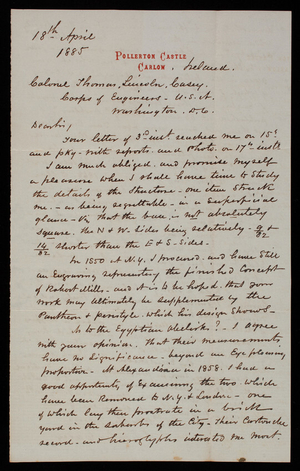 18th April
1885
POLLERTON CASTLE
CARLOW. Ireland.
Colonel Thomas, Lincoln, Casey,
Corps of Engineers - U.S.A.
Washington. D.C.
Dear Sir,
Your letter of 3d inst reached me on 15th
and pkg. with reports, and photo. on 17th inst.
I am much obliged, and promise myself
a pleasure when I shall have time to study
the details of the Structure - one item struck
me - as being regrettable - in a superficial
glance - viz that the base is not absolutely
square. the N & W. Sides being relatively - 9/32 &
14/32 shorter than the E & S - Sides.
In 1850 at N.Y. I procured, and have still
an Engraving representing the finished concept
of Robert Mills - and it is to be hoped, that your
work may ultimately be supplemented by the
Pantheon & peristyle, which his design shows -
As to the Egyptian obelisks? - I agree
with your opinion, that their measurements
have no significance - beyond an Eye pleasing
proportion. At Alexandria in 1858. I had a
good opportunity of examining the two which
have been removed to N.Y. & London - one
of which lay then prostrate in a brick
yard in the suburbs of the City - their Cartouche
record - and hieroglyphs interested me most.